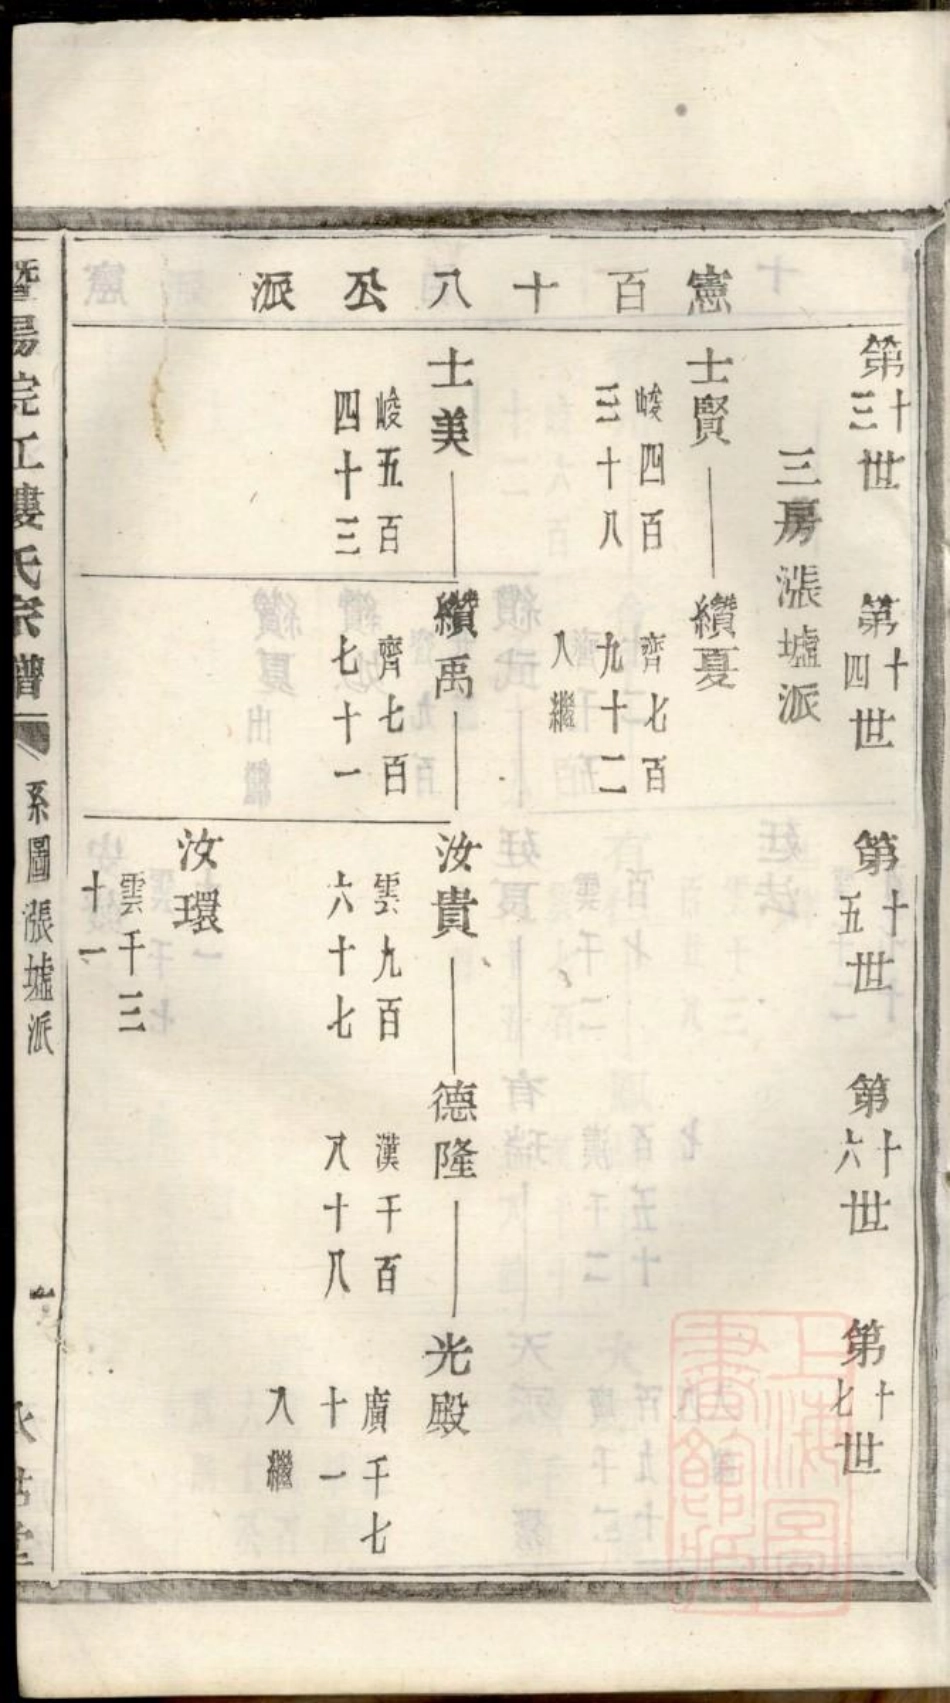 憲百十八公派
第十三世
第十四世
第十五世
第十六世
第十七世
三房漲墟派
士賢
峻四百
三十八
纘夏
齊七百
九十二
入繼
士美
峻五百
四十三
纘禹
齊七百
七十一
汝貴
雲九百
六十七
德隆
漢千百
八十八
光殿
廣千七
十一
入繼
汝環
雲千三
十一
暨陽浣江樓氏宗譜
系圖漲墟派
上海圖
書館藏